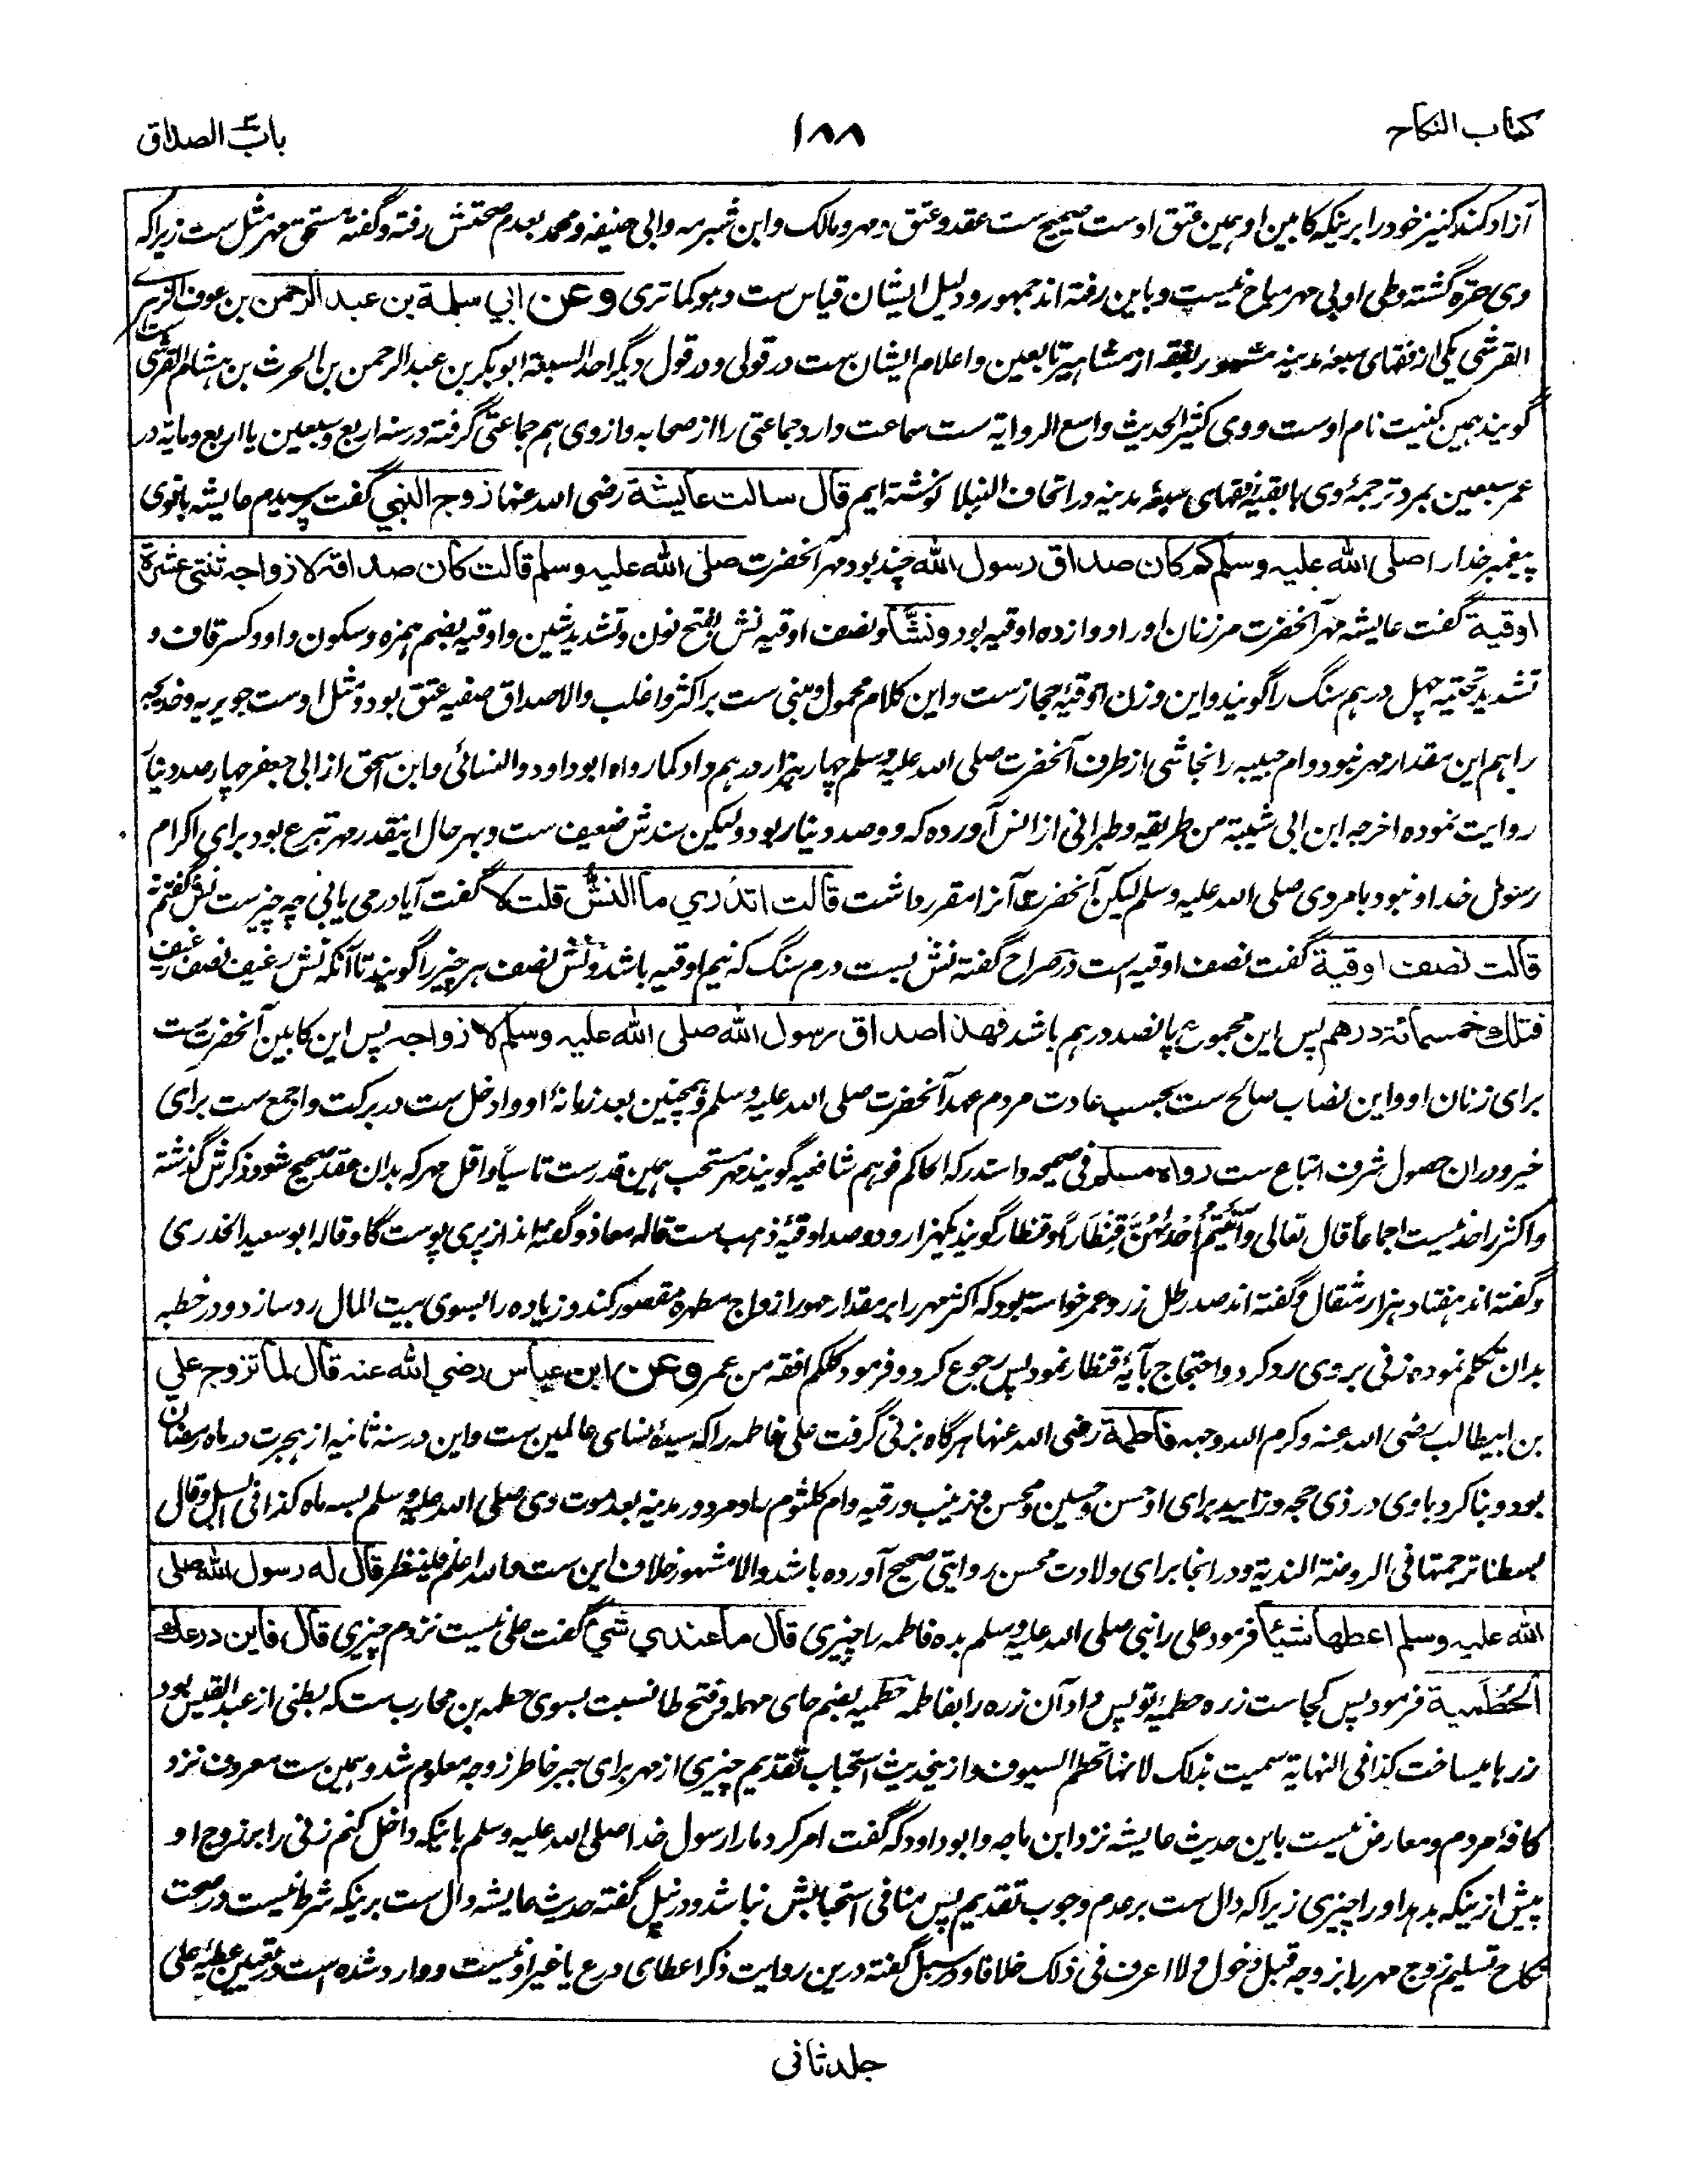 كتاب النكاح
١٨٨
باب الصداق
آزاد کند کنیز خود را برینکه کابین او همین عتق اوست صحیح ست عقد و عتق و مهر و مالک و ابن شبرمه و ابی حنیفه و محمد بعدم صحتش رفته و گفته مستحق مهر مثل ست زیرا که
وی حره گشته وطی او بی مهر مباح نیست و باین رفته اند جمهور و دلیل ایشان قیاس ست و هو کما تری وعن ابي سلمة بن عبد الرحمن بن عوف الزهري
القرشی یکی از فقهای سبعهٔ مدینه مشهور بفقه از مشاهیر تابعین و اعلام ایشان ست در قولی و در قول دیگر احد السبعة ابو بکر بن عبد الرحمن بن الحرث بن هشام القرشی ست
گویند همین کنیت نام اوست و وی کثیر الحدیث واسع الروایة ست سماعت دارد جماعتی را از صحابه و از وی هم جماعتی گرفته در سنه اربع و سبعین یا اربع و مایة در
عمر سبعین بمرد ترجمهٔ وی با بقیهٔ فقهای سبعهٔ مدینه در اتحاف النبلا نوشته ایم قال سالت عايشة رضی الله عنها زوج النبي گفت پرسیدم عایشه بانوی
پیغمبر خدا را صلى الله عليه وسلم كم كان صداق رسول الله چند بود مهر آنحضرت صلى الله عليه وسلم قالت كان صداقه لازواجه ثنتي عشرة
اوقية گفت عایشه مهر آنحضرت مر زنان او را دوازده اوقیه بود ونشّا و نصف اوقیه نش بفتح نون و تشدید شین و اوقیه بضم همزه و سکون واو و کسر قاف و
تشدید تحتیه چهل درهم سنگ را گویند و این وزن اوقیهٔ حجاز ست و این کلام محمول و مبنی ست بر اکثر و اغلب و الا صداق صفیه عتق بود و مثل اوست جویریه و خدیجه
را هم این مقدار مهر نبود و ام حبیبه را نجاشی از طرف آنحضرت صلی الله علیه وسلم چهار هزار درهم داد کما رواه ابو داود و النسائی و ابن اسحق از ابی جعفر چهار صد دینار
روایت نموده اخرجه ابن ابی شیبة من طریقه و طبرانی از انس آورده که دو صد دینار بود و لیکن سندش ضعیف ست و بهر حال اینقدر مهر تبرع بود برای اکرام
رسول خدا و نبود بامر وی صلی الله علیه وسلم لیکن آنحضرت آنرا مقرر داشت قالت اتدري ما النش قلت لا گفت آیا در می یابی چه چیزست نش گفتم نه
قالت نصف اوقية گفت نصف اوقیه است در صراح گفته نش بست درم سنگ که نیم اوقیه باشد و نش نصف هر چیز را گویند تا آنکه نش رغیف نصف رغیف
فتلك خمسمائة درهم پس این مجموع پانصد درهم باشد فهذا صداق رسول الله صلى الله عليه وسلم لازواجه پس این کابین آنحضرت ست
برای زنان او و این نصاب صالح ست بحسب عادت مردم عهد آنحضرت صلی الله علیه وسلم و همچنین بعد زمانهٔ او و ادخل ست در برکت و اجمع ست برای
خیر و دران حصول شرف اتباع ست رواه مسلم فی صحیحه و استدرکه الحاکم فوهم شافعیه گویند مهر مستحب همین قدر ست تاسیا و اقل مهر که بدان عقد صحیح شود ذکرش گذشته
و اکثر را حد نیست اجماعا قال تعالی وآتيتم احداهن قنطارا و قنطار گویند یکهزار و دو صد اوقیهٔ ذهب ست قاله معاذ و گفته اند از پری پوست گاو قاله ابو سعید الخدری
و گفته اند هفتاد هزار مثقال و گفته اند صد رطل زر و عمر خواسته بود که اکثر مهر را بر مقدار مهور ازواج مطهره مقصور کند و زیاده را بسوی بیت المال رد سازد و در خطبه
بدان تکلم نموده زنی بروی رد کرد و احتجاج بآیهٔ قنطار نمود پس رجوع کرد و فرمود کلکم افقه من عمر وعن ابن عباس رضي الله عنه قال لما تزوج علي
بن ابیطالب رضی الله عنه و کرم الله وجهه فاطمة رضی الله عنها هرگاه بزنی گرفت علی فاطمه را که سیدهٔ نسای عالمین ست و این در سنه ثانیه از هجرت در ماه رمضان
بود و بنا کرد باوی در ذی حجه و زایید برای او حسن و حسین و محسن و زینب و رقیه و ام کلثوم را و مرد در مدینه بعد موت وی صلی الله علیه وسلم بسه ماه کذا فی السبل و قال
بسطنا ترجمتها فی الروضة الندیة و در انجا برای ولادت محسن روایتی صحیح آورده باشد و الا مشهور خلاف این ست و الله اعلم فلینظر قال له رسول الله صلى
الله عليه وسلم اعطها شيئا فرمود علی را نبی صلی الله علیه وسلم بده فاطمه را چیزی قال ما عندي شيء گفت علی نیست نزدم چیزی قال فاين درعك
الحُطَمية فرمود پس کجاست زره حطمیهٔ تو پس داد آن زره را بفاطمه حطمیه بضم حای مهمله و فتح طا نسبت بسوی حطمه بن محارب ست که بطنی از عبد القیس بود
زرها میساخت کذا فی النهایة سمیت بذلک لانها تحطم السیوف و ازینحدیث استحباب تقدیم چیزی از مهر برای جبر خاطر زوجه معلوم شد و همین ست معروف نزد
کافهٔ مردم و معارض نیست باین حدیث عایشه نزد ابن ماجه و ابو داود که گفت امر کرد مارا رسول خدا صلی الله علیه وسلم باینکه داخل کنم زنی را بر زوج او
پیش از ینکه بدهد او را چیزی زیرا که دال ست بر عدم وجوب تقدیم پس منافی استحبابش نباشد و در نیل گفته حدیث عایشه دال ست برینکه شرط نیست در صحت
نکاح تسلیم زوج مهر را بزوجه قبل دخول و لا اعرف فی ذلک خلافا و در سبل گفته درین روایت ذکر اعطای درع یا غیر او نیست و وارد شده است در تعیین عطیه علی
جلد ثانی